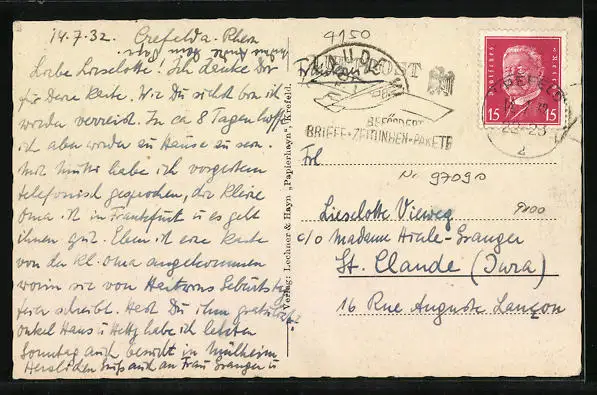 14.7.32. Crefeld a. Rhein
Liebe Lieselotte! Ich danke Dir
für Deine Karte. Wie Du siehst bin ich
wieder verreist. In ca 8 Tagen hoffe
ich aber wieder zu Hause zu sein.
Mit Mutti habe ich vorgestern
telefonisch gesprochen, die kleine
Oma ist in Frankfurt u es geht
ihnen gut. Eben ist eine Karte
von der kl. Oma angekommen
worin sie von Geburtstags
feier schreibt. Hast Du ihm gratuliert?
Onkel Hans u Hetty habe ich letzten
Sonntag auch besucht in Mülheim
Herzlichen Gruß auch an Frau Granger u
Verlag: Lechner & Hayn „Papierhayn", Krefeld.
4150
BEFÖRDERT
BRIEFE-ZEITUNGEN-PAKETE
DEUTSCHES REICH
15 15
CREFELD
22-23
Frl
Nr 97090
Lieselotte Vieweg
9800
c/o Madame Granger
St. Claude (Jura)
16 Rue Auguste Lançon